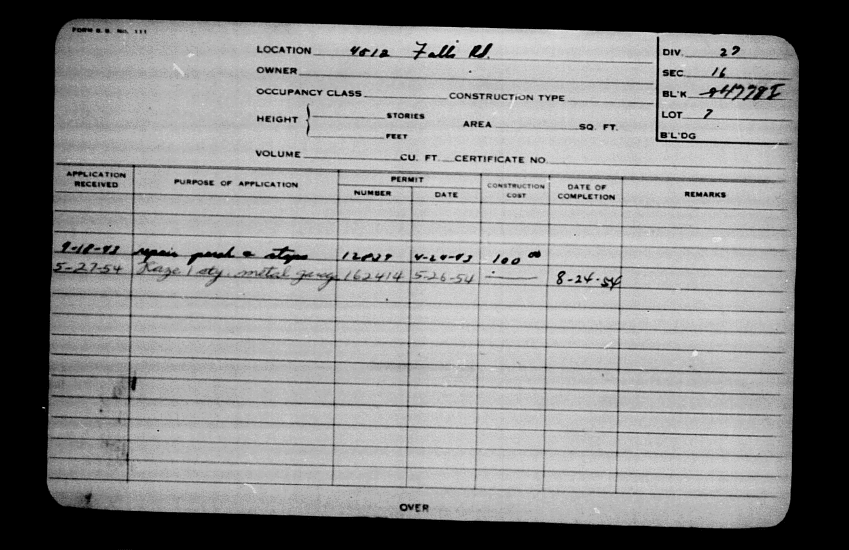 FORM B. B. No. 111
LOCATION 4512 Falls Rd.
OWNER
OCCUPANCY CLASS CONSTRUCTION TYPE
HEIGHT STORIES AREA SQ. FT.
FEET
VOLUME CU. FT. CERTIFICATE NO.
DIV. 27
SEC. 16
BL'K
LOT 7
B'L'DG
APPLICATION RECEIVED PURPOSE OF APPLICATION PERMIT NUMBER DATE CONSTRUCTION COST DATE OF COMPLETION REMARKS
repair porch & steps 100 00
5-27-54 Raze 1 sty. metal garag 162414 5-26-54 — 8-24-54
OVER